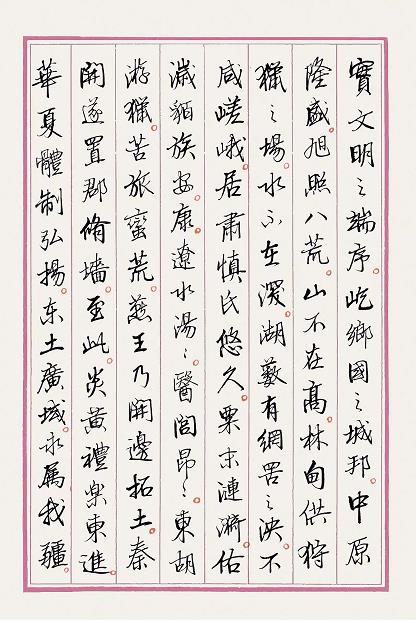 實文明之端序。屹鄉國之城邦。中原
隆盛。旭照八荒。山不在髙。林甸供狩
獵之場。水不在深。湖藪有網罟之泱。不
咸嵯峨。居肅慎氏悠久。粟末漣漪。佑
濊貊族安康。遼水湯〻。醫閭昂〻。東胡
游獵。苦旅蠻荒。燕王乃開邊拓土。秦
開遂置郡脩墻。至此。炎黃禮樂東進。
華夏體制弘揚。东土廣域。永屬我疆。